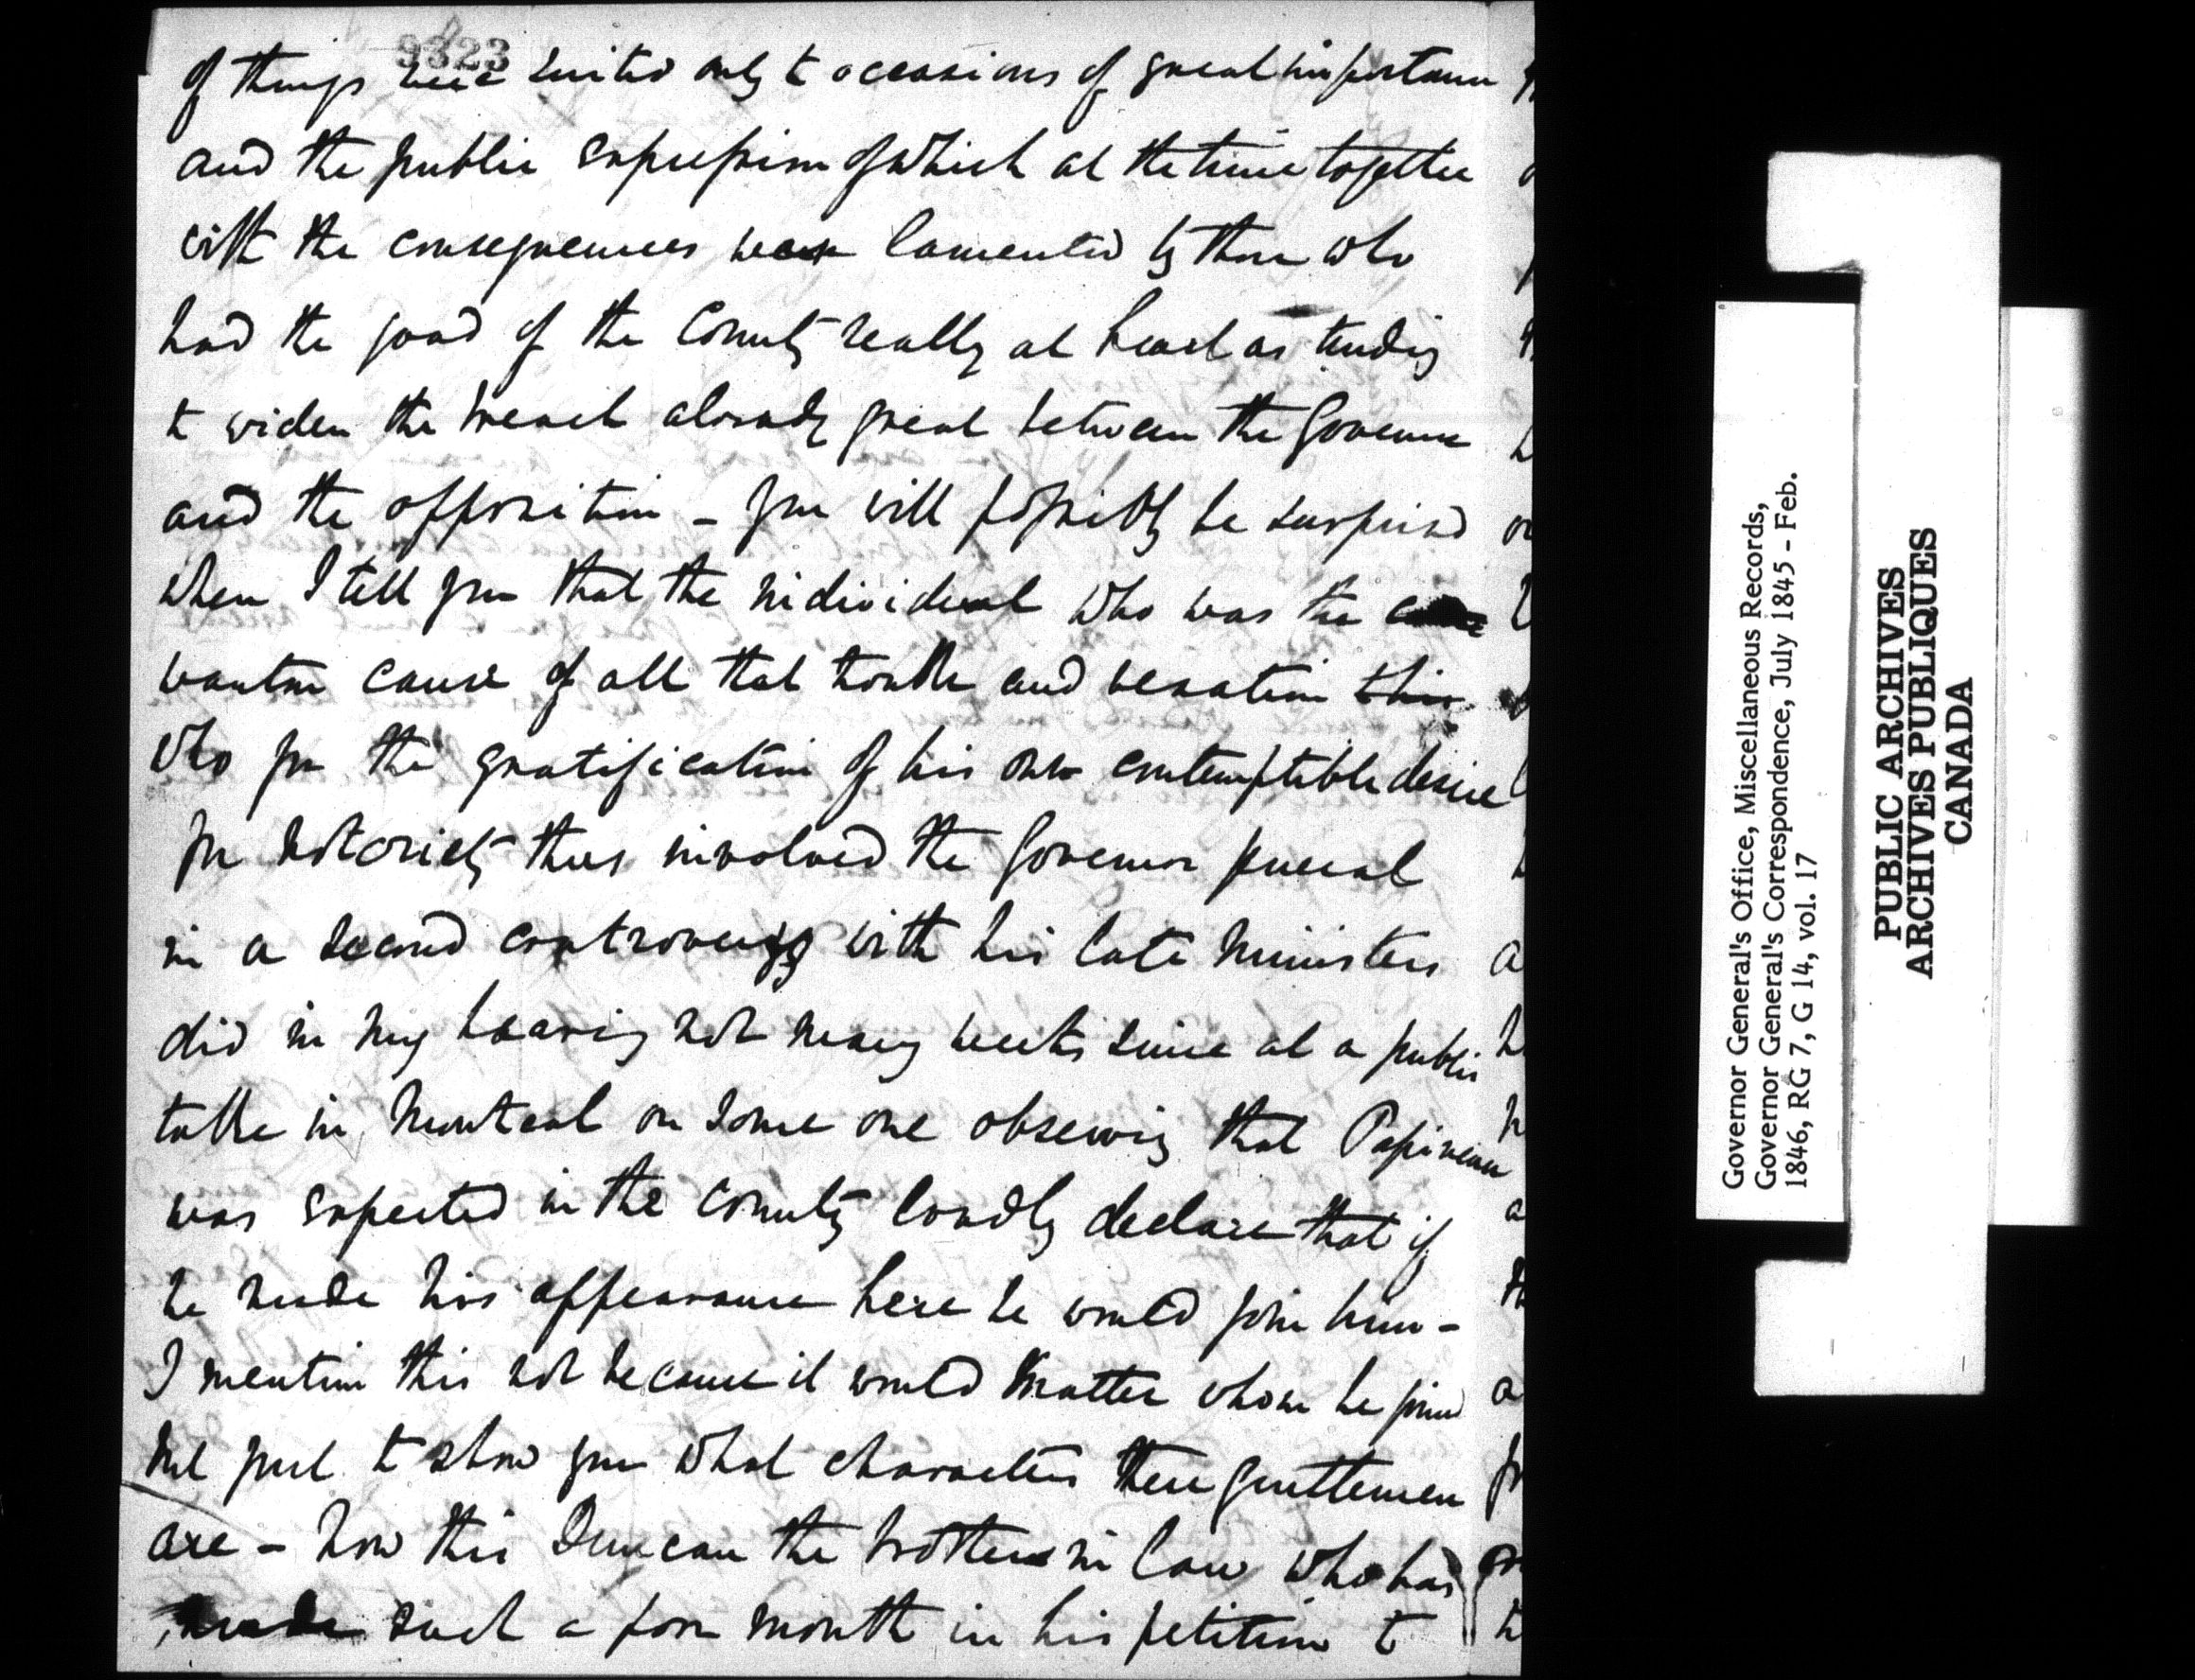 9323
of things were suited only to occasions of great importance
and the public expression of which at the time together
with the consequences were lamented by those who
had the good of the Country really at heart as tending
to widen the breach already great between the Governor
and the opposition - You will possibly be surprised
when I tell you that the individual who was the
wanton cause of all that trouble and vexation this
who for the gratification of his own contemptible desire
for notoriety thus involved the Governor General
in a second controversy with his late Ministers
did in my hearing not many weeks since at a public
table in Montreal on some one observing that Papineau
was expected in the Country loudly declare that if
he made his appearance here he would join him -
I mention this not because it would matter whom he joined
but just to show you what characters these gentlemen
are - now this Duncan the brother in law who has
made such a poor mouth in his petition to
Governor General's Office, Miscellaneous Records,
Governor General's Correspondence, July 1845 - Feb.
1846, RG 7, G 14, vol. 17
PUBLIC ARCHIVES
ARCHIVES PUBLIQUES
CANADA